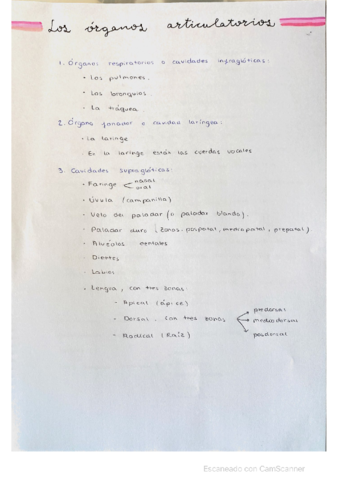 Los órganos articulatorios
1. Órganos respiratorios o cavidades infraglóticas:
• Los pulmones.
• Los bronquios
• La tráquea
2. Órgano fonador o laríngea:
• La laringe
• En la laringe están las cuerdas vocales
3. Cavidades supraglóticas:
• Faringe nasal
oral
• Úvula (campanilla)
• Velo del paladar (o paladar blando).
• Paladar duro (zonas: pospalatal, mediopalatal, prepalatal)
• Alvéolos dentales
• Dientes
• Labios
• Lengua, con tres zonas:
- Apical (ápice)
- Dorsal, con tres zonas predorsal
mediodorsal
posdorsal
- Radical (Raíz)
Escaneado con CamScanner